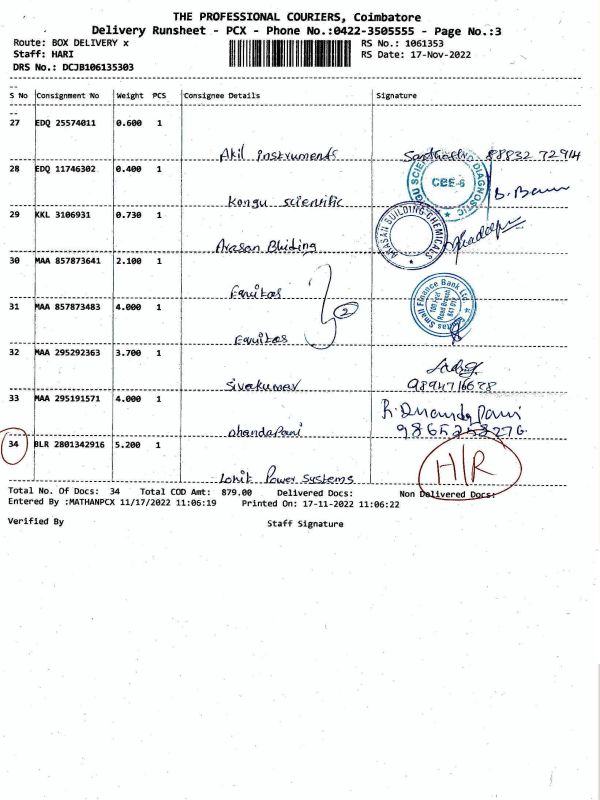 THE PROFESSIONAL COURIERS, Coimbatore
Delivery Runsheet - PCX - Phone No.:0422-3505555 - Page No.:3
Route: BOX DELIVERY x RS No.: 1061353
Staff: HARI RS Date: 17-Nov-2022
DRS No.: DCJB106135303
S No Consignment No Weight PCS Consignee Details Signature
27 EDQ 25574011 0.600 1
Akil instruments 88832 72914
28 EDQ 11746302 0.400 1
CBE-6
Kongu scientific
29 KKL 3106931 0.730 1
ARASAN BUILDING CHEMICALS
Arasan Bluiding
30 MAA 857873641 2.100 1
Equitas
2
Small Finance Bank Ltd.
31 MAA 857873483 4.000 1
Equitas
32 MAA 295292363 3.700 1
Sivakumar
33 MAA 295191571 4.000 1
dhandapani
34 BLR 2801342916 5.200 1
H/R
Lohit Power Systems
Total No. Of Docs: 34 Total COD Amt: 879.00 Delivered Docs: Non Delivered Docs:
Entered By :MATHANPCX 11/17/2022 11:06:19 Printed On: 17-11-2022 11:06:22
Verified By Staff Signature